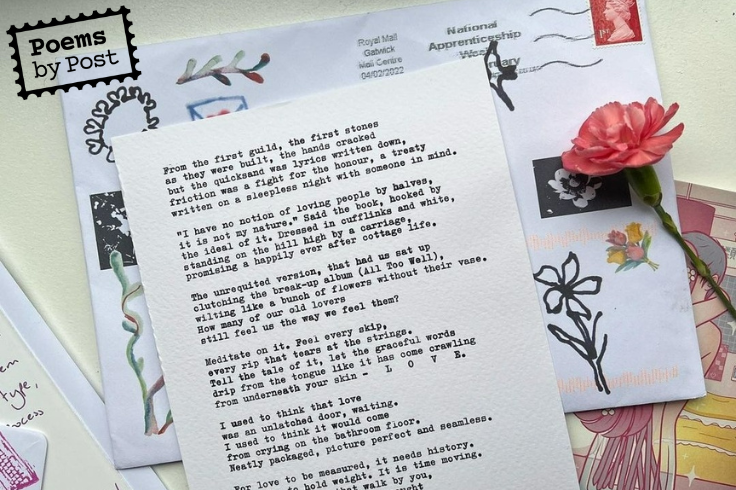 Poems
by Post
Royal Mail
Gatwick
Mail Centre
04/02/2022
National
Apprenticeship
1st
From the first guild, the first stones
as they were built, the hands cracked
but the quicksand was lyrics written down,
friction was a fight for the honour, a treaty
written on a sleepless night with someone in mind.
"I have no notion of loving people by halves,
it is not my nature." Said the book, hooked by
the ideal of it. Dressed in cufflinks and white,
standing on the hill high by a carriage,
promising a happily ever after cottage life.
The unrequited version, that had us sat up
clutching the break-up album (All Too Well),
wilting like a bunch of flowers without their vase.
How many of our old lovers
still feel us the way we feel them?
Meditate on it. Feel every skip,
every rip that tears at the strings.
Tell the tale of it, let the graceful words
drip from the tongue like it has come crawling
from underneath your skin - L O V E.
I used to think that love
was an unlatched door, waiting.
I used to think it would come
from crying on the bathroom floor.
Neatly packaged, picture perfect and seamless.
For love to be measured, it needs history.
to hold weight. It is time moving.
that walk by you,